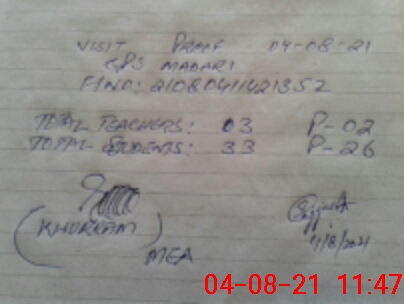 VISIT PROOF 04-08-21
GPS MADARI
TOTAL TEACHERS: 03 P-02
TOTAL STUDENTS: 33 P-26
(KHURRAM)
MEA
4/8/2021
04-08-21 11:47